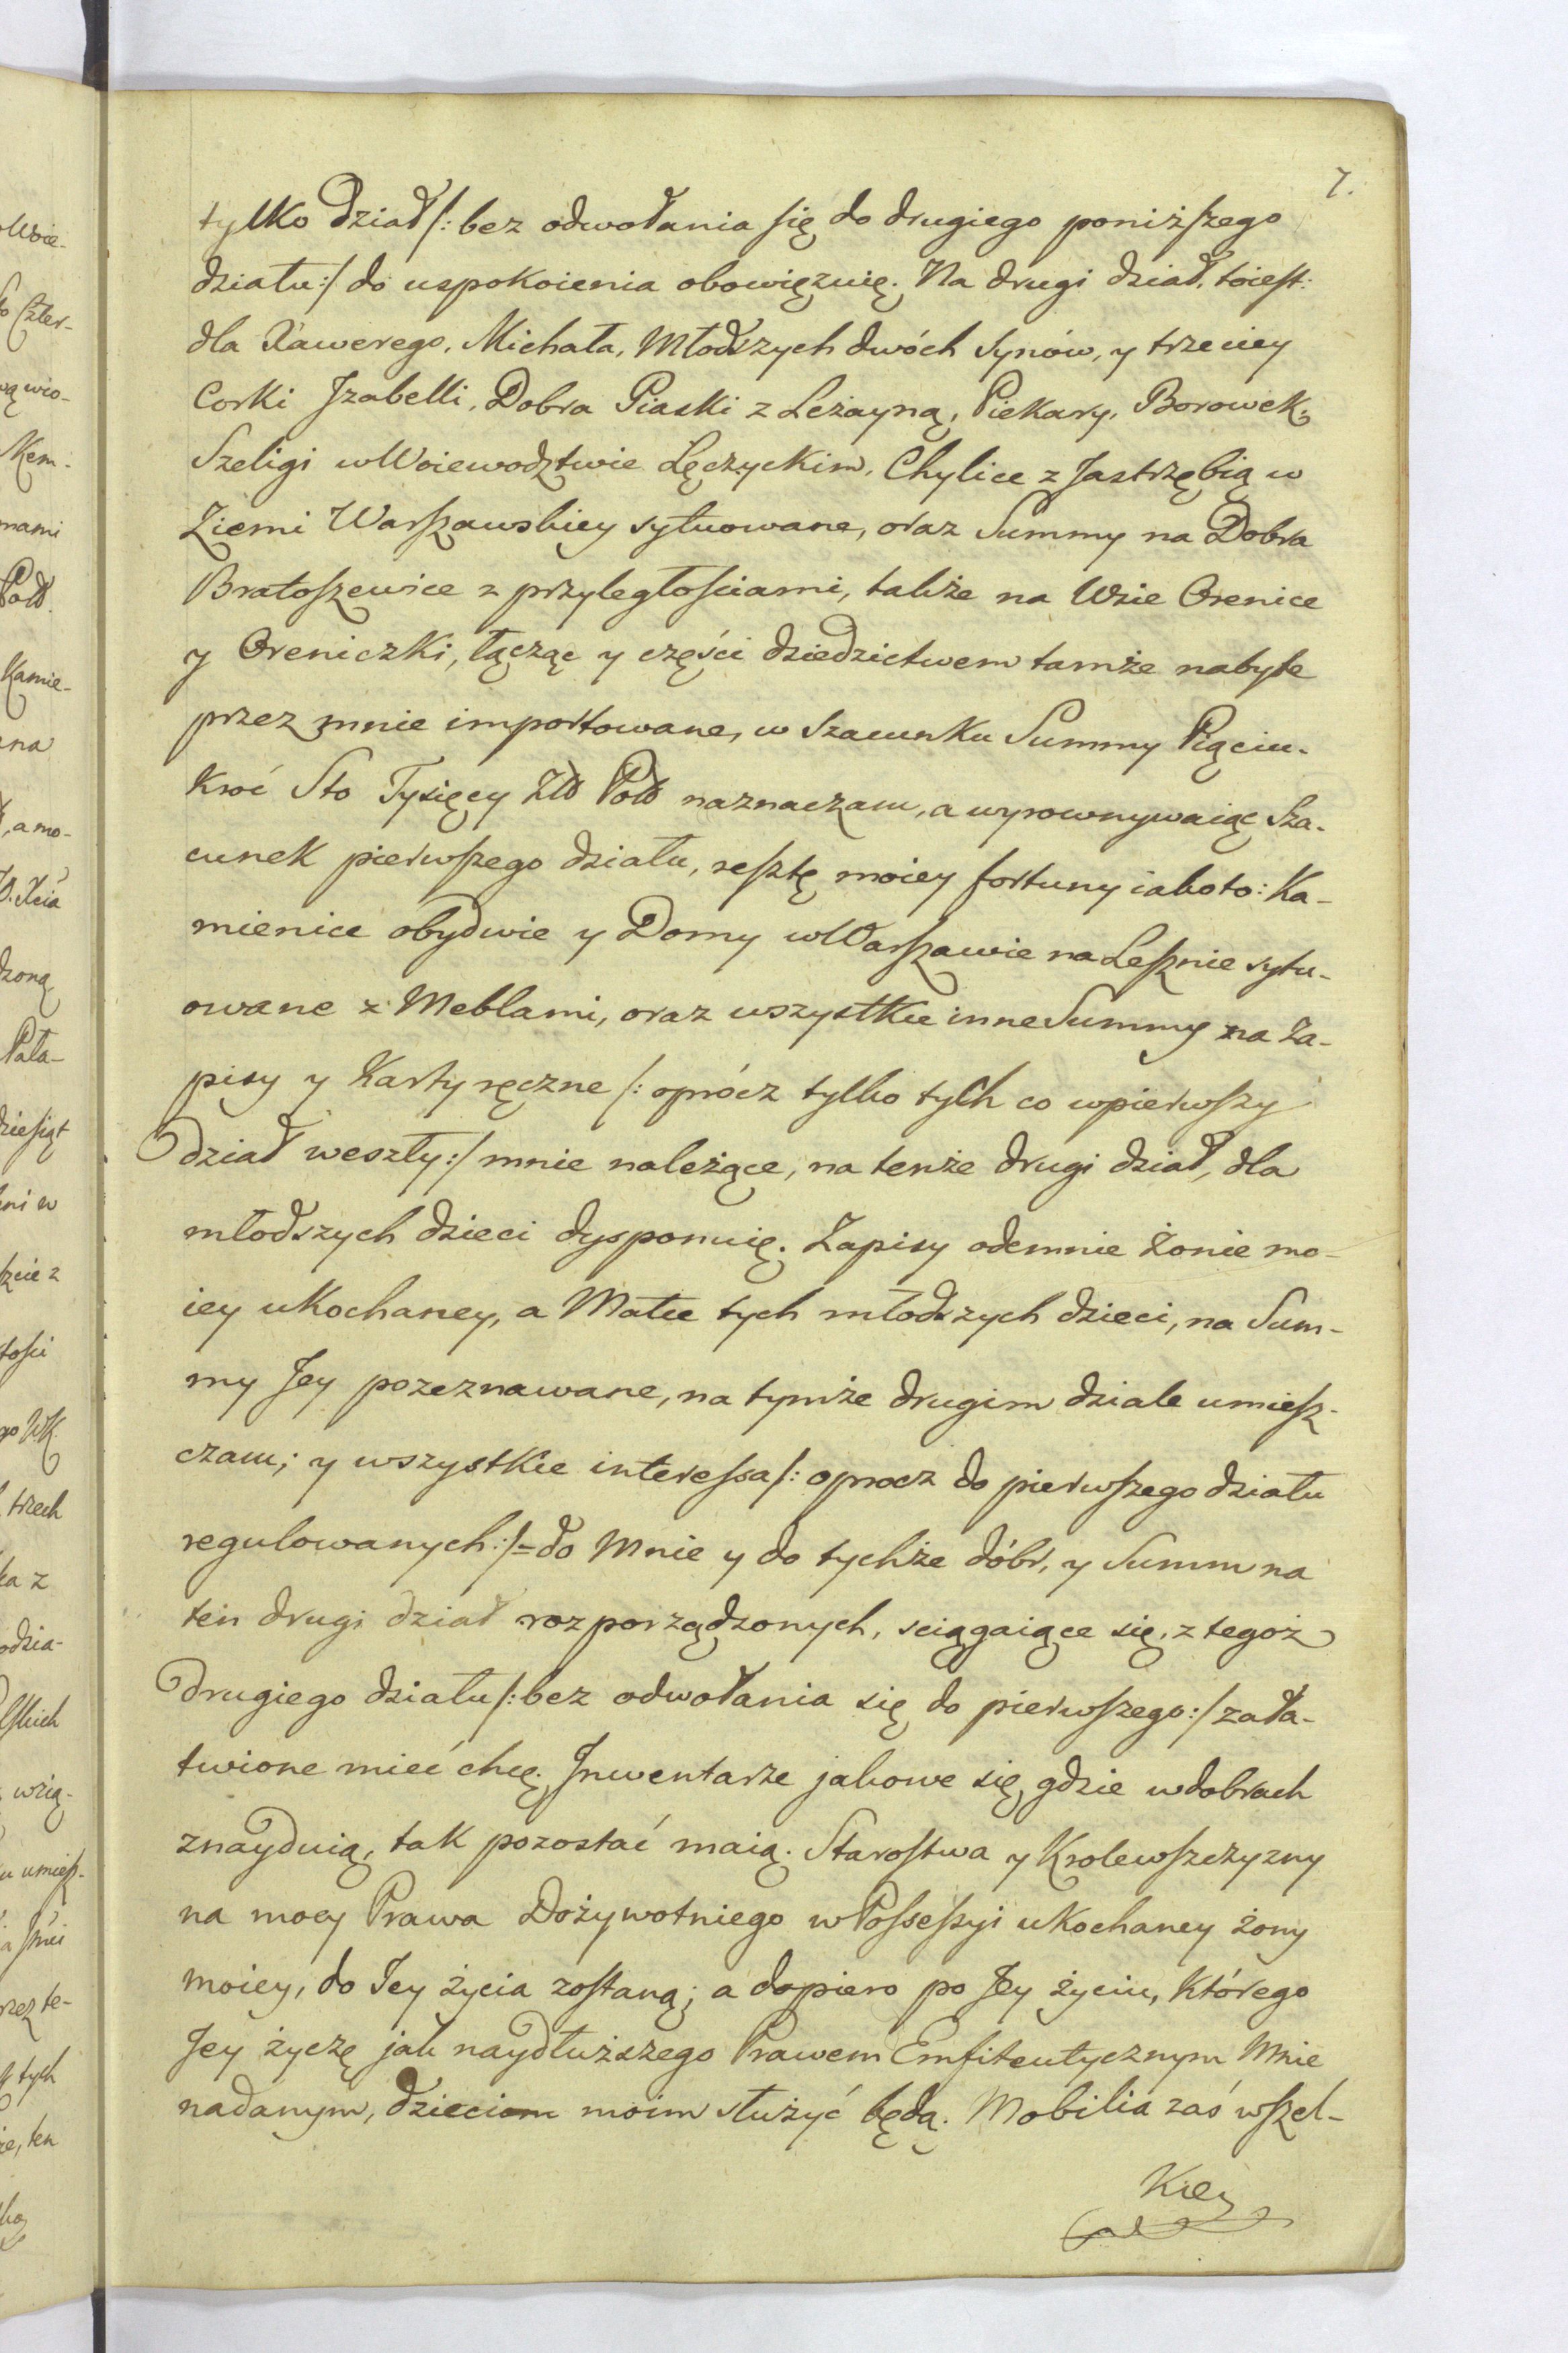 7.
tylko dział /: bez odwołania się do drugiego poniższego
działu :/ do uspokoienia obowięzuię. Na drugi dział, toiest:
dla Xawerego, Michała, Młodszych dwóch Synów, y trzeciey
Corki Jzabelli, Dobra Piaski z Leżayną, Piekary, Borowek,
Szeligi w Woiewodztwie Łęczyckim, Chylice z Jastrzębią w
Ziemi Warszawskiey sytuowane, oraz Summy na Dobra
Bratoszewice z przyległościami, także na Wsie Orenice
y Oreniczki, łącząc y części dziedzictwem tamże nabyte
przez mnie importowane, w Szacunku Summy Pięciu-
kroć Sto Tysięcy Złł Poll naznaczam, a wyrownywaiąc Sza-
cunek pierwszego działu, resztę moiey fortuny iakoto: Ka-
mienice obydwie y Domy w Warszawie na Lesznie sytu-
owane z Meblami, oraz wszystkie inne Summy na Za-
pisy y Karty ręczne /: oprócz tylko tych co w pierwszy
dział weszły :/ mnie należące, na tenże drugi dział, dla
młodszych dzieci dysponuię. Zapisy odemnie żonie mo-
iey ukochaney, a Matce tych młodszych dzieci, na Sum-
my Jey pozeznawane, na tymże drugim dziale umiesz-
czam; y wszystkie interessa /: oprocz do pierwszego działu
regulowanych :/ = do Mnie y do tychże dóbr, y Summ na
ten drugi dział rozporządzonych, sciągaiące się, z tegoż
drugiego działu /: bez odwołania się do pierwszego :/ zała-
twione mieć chcę. Jnwentarze jakowe się gdzie w dobrach
znayduią, tak pozostać maią. Starostwa y Krolewszczyzny
na mocy Prawa Dożywotniego w Possessyi ukochaney żony
moiey, do Jey życia zostaną; a dopiero po Jey życiu, którego
Jey życzę jak naydłuższego Prawem Emfiteutycznym Mnie
nadanym, dzieciom moim służyć będą. Mobilia zaś wszel-
Kiey